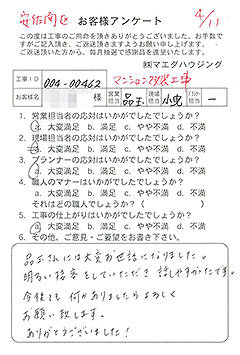 安佐南区 お客様アンケート 4/11
この度は工事のご用命を頂きありがとうございました。お手数で
すがご記入頂き、ご返送頂きますようお願い申し上げます。
ご返送頂いた方から、毎月抽選で感謝品を進呈いたします。
㈱マエダハウジング
工事ID 004-00462 マンション改装工事
お客様名 様 営業担当 品玉 現場担当 小兜 プランナー担当 ー
1. 営業担当の応対はいかがでしたでしょうか?
a. 大変満足 b. 満足 c. やや不満 d. 不満
2. 現場担当者の応対はいかがでしたでしょうか?
a. 大変満足 b. 満足 c. やや不満 d. 不満
3. プランナーの応対はいかがでしたでしょうか?
a. 大変満足 b. 満足 c. やや不満 d. 不満
4. 職人のマナーはいかがでしたでしょうか?
a. 大変満足 b. 満足 c. やや不満 d. 不満
それはどの職人でしょうか? ( )
5. 工事の仕上がりはいかがでしたでしょうか?
a. 大変満足 b. 満足 c. やや不満 d. 不満
6. その他、ご意見・ご要望をお書き下さい。
品玉さんには大変お世話になりました。
明るい接客をしていただき 話しやすかったです。
今後とも 何かありましたらよろしく
お願い致します。
ありがとうございました!